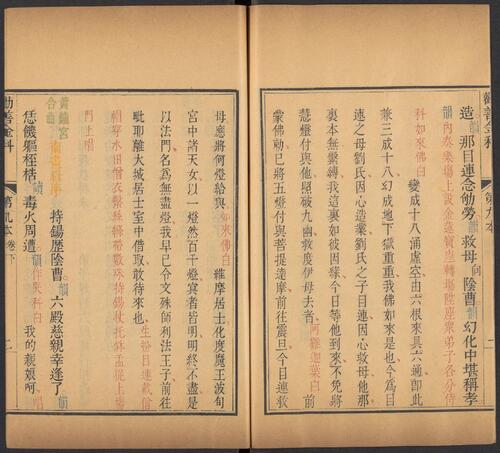 勸善金科
第九本
造那日連念劬勞韻救母向陰曹韻幻化中堪稱孝
韻內奏樂場上設金蓮寶座轉場陞座衆弟子各分侍
科如來佛白
變成十八涌虛空由六根來具六通卽此
兼三成十八幻成地下獄重重我佛如來是也今爲目
連之母劉氏因心造業劉氏之子目連因心救母他那
裏本無繫縛我這裏如彼因緣今日等他到來不免將
慧燈付與他照破九幽救度伊母去者
阿難迦葉白
前
蒙佛勅已將五燈付與菩提達摩前往震旦今日連救
母應將何燈給與
如來佛白
維摩居士化度魔王波旬
宮中諸天女以一燈然百千燈冥者皆明明終不盡是
以法門名爲無盡燈我早已令文殊師利法王子前往
毗耶離大城居士室中借取敢待來也
生扮目連戴僧
帽穿水田僧衣繫絲縧帶數珠持錫杖托鉢盂從上場
門上唱
黃鐘宮
合曲
持錫歷陰曹韻六殿慈親幸逢了韻
恁饑軀桎梏讀毒火周遭韻作來科白
我的親娘呵
唱
勸善金科
第九本卷下
二